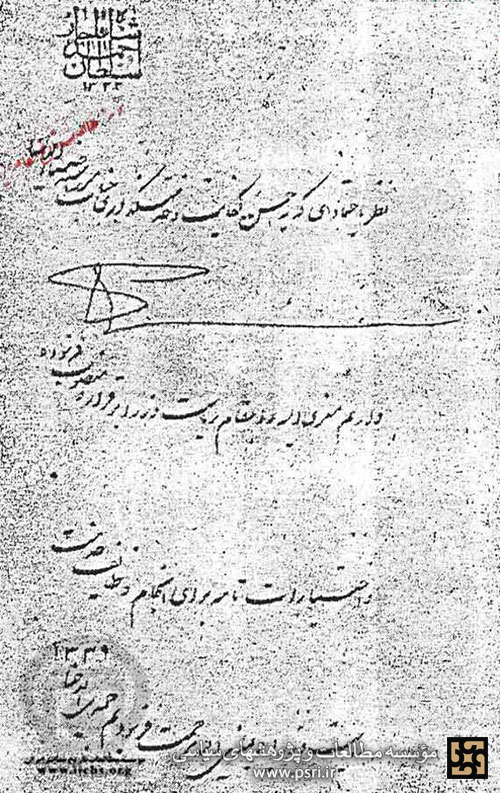 شاه قاجار
احمد
سلطان
نظر به اعتمادی که به حسن کفایت و خدمتگذاری جناب میرزا سید ضیاءالدین
داریم معزی الیه را بمقام ریاست وزراء برقرار و منصوب فرموده
و اختیارات تامه برای انجام وظایف خدمت
مرحمت فرمودیم جمادی الاخر
۱۳۳۹
مؤسسه مطالعات و پژوهشهای سیاسی
www.psri.ir
www.iichs.org